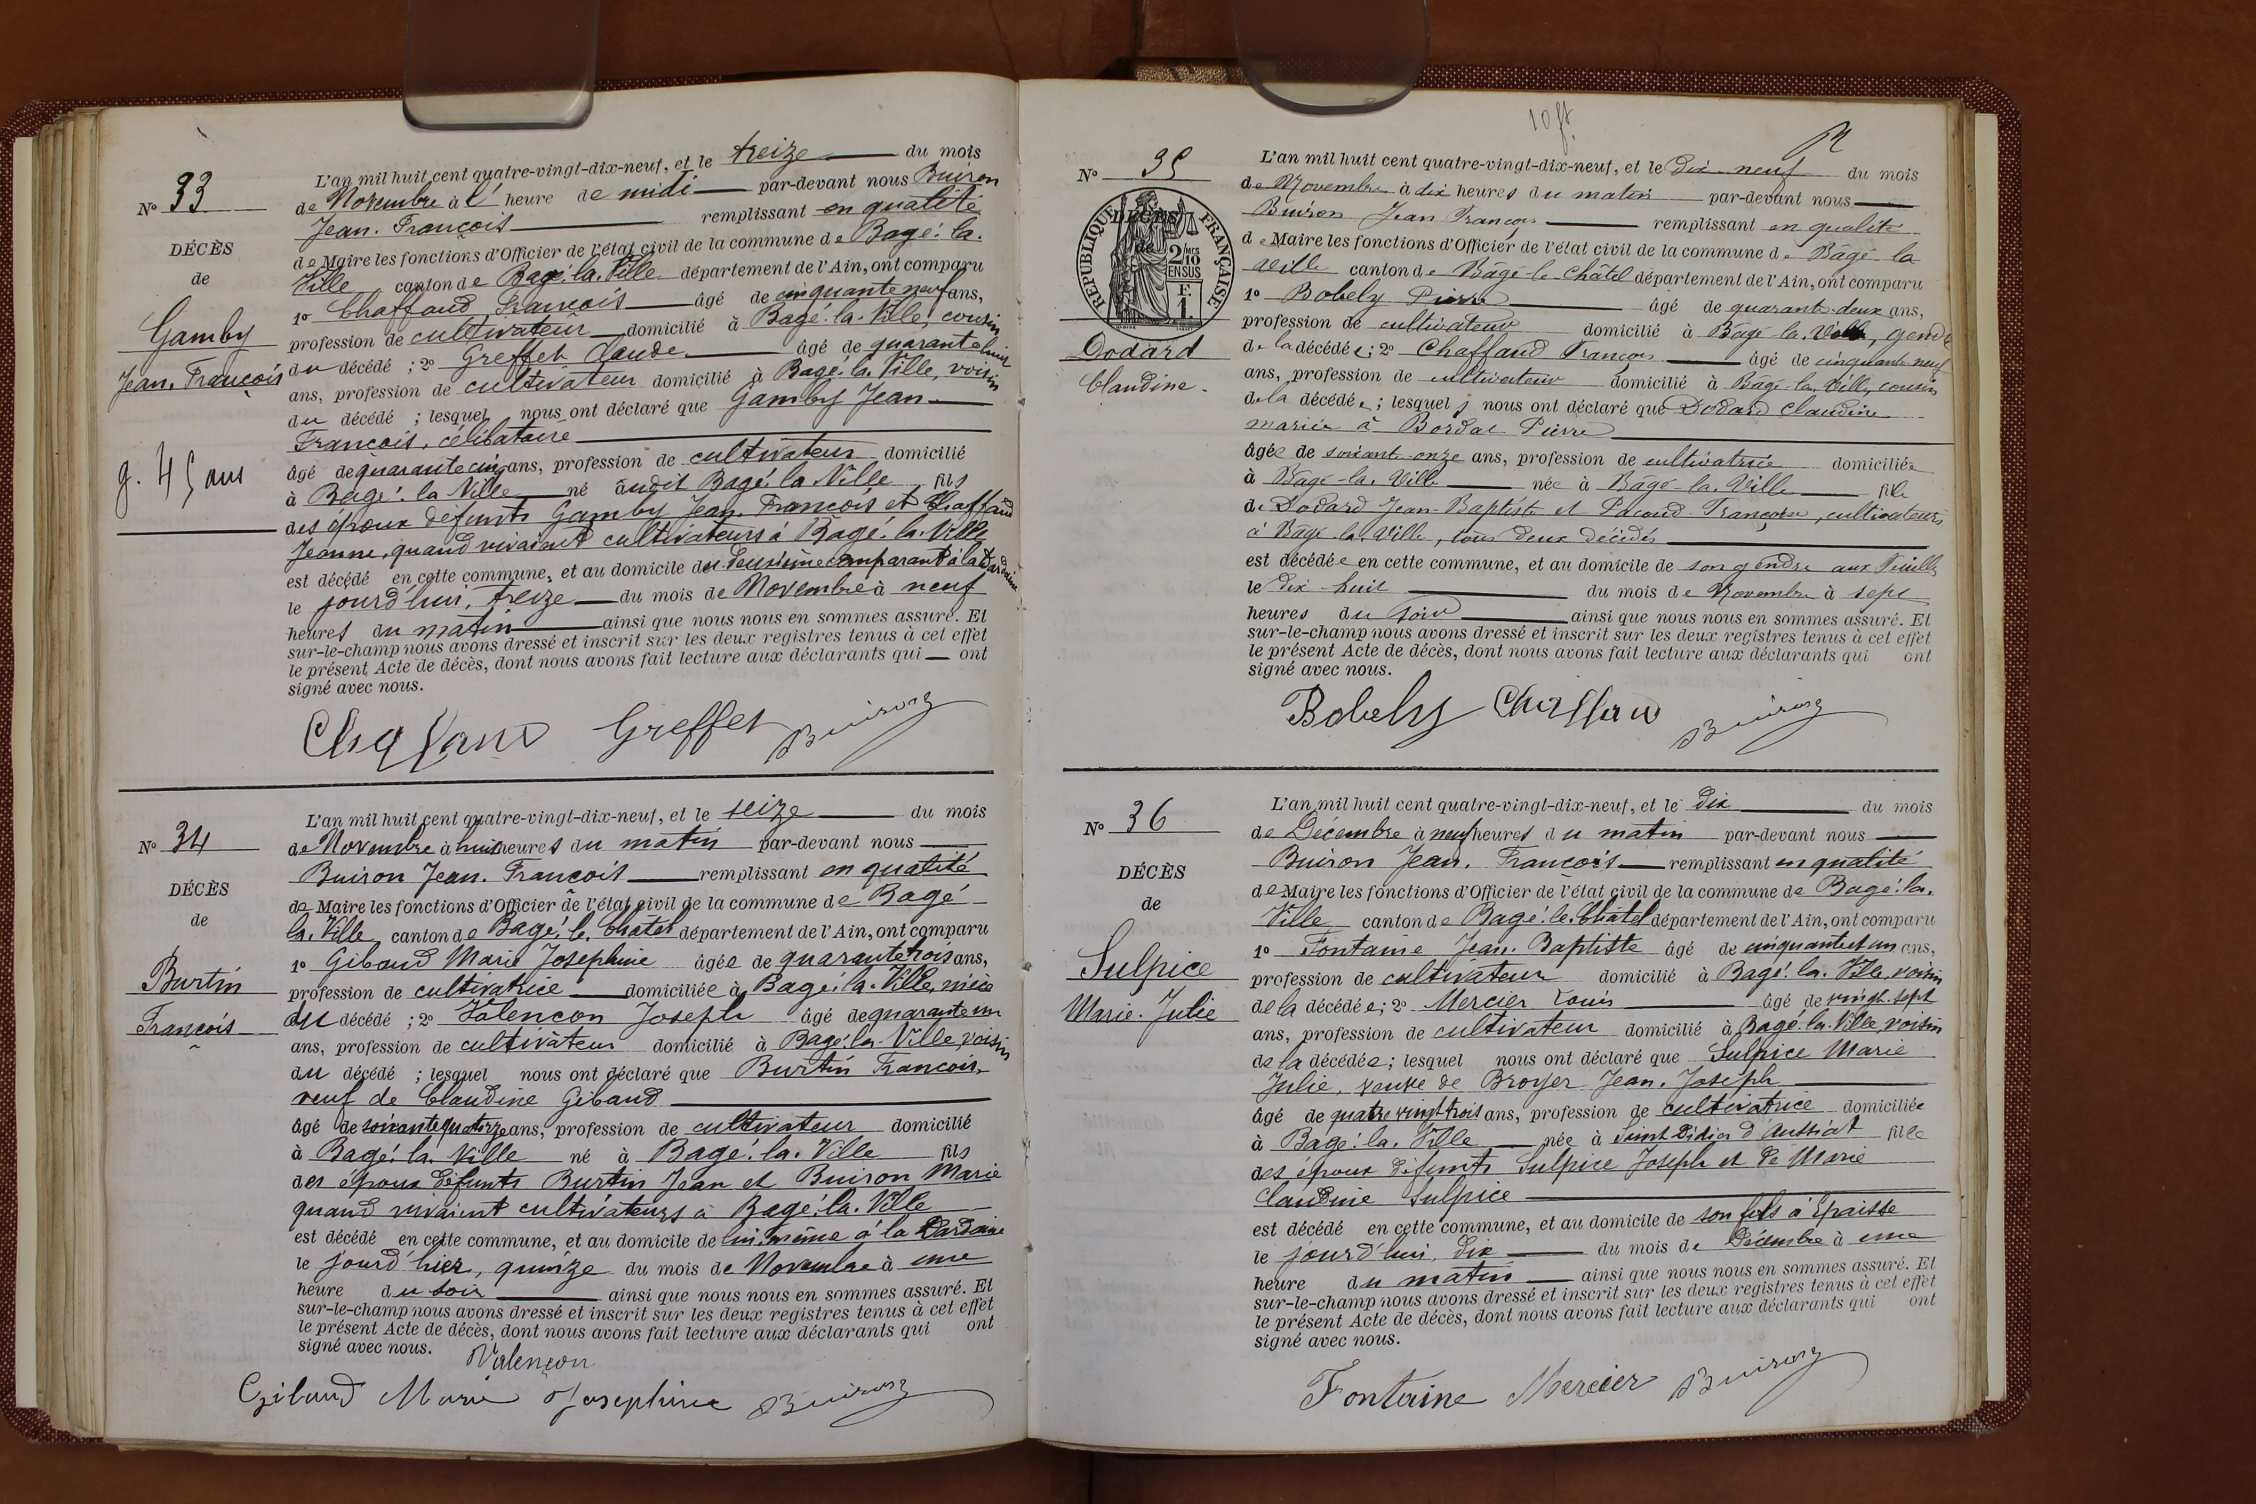 N° 33
DÉCÈS
de
Gamby
Jean. François
g. 45 ans
L'an mil huit cent quatre-vingt-dix-neuf, et le treize du mois
de Novembre à l' heure de midi par-devant nous Buiron
Jean. François remplissant en qualité
de Maire les fonctions d'Officier de l'état civil de la commune de Bagé. la.
Ville canton de Bagé. la. Ville département de l'Ain, ont comparu
1° Chaffaud François âgé de cinquante neuf ans,
profession de cultivateur domicilié à Bagé. la. Ville, cousin
du décédé ; 2° Greffet Claude âgé de quarante huit
ans, profession de cultivateur domicilié à Bagé. la. Ville, voisin
du décédé ; lesquel nous ont déclaré que Gamby Jean
François, célibataire
âgé de quarante cinq ans, profession de cultivateur domicilié
à Bagé. la Ville né audit Bagé. la Ville fils
des époux défunts Gamby Jean. François et Chaffaud
Jeanne, quand vivaient cultivateurs à Bagé. la. Ville
est décédé en cette commune, et au domicile du deuxième comparant à la Dardaine
le jourd'hui, treize du mois de Novembre à neuf
heures du matin ainsi que nous nous en sommes assuré. Et
sur-le-champ nous avons dressé et inscrit sur les deux registres tenus à cet effet
le présent Acte de décès, dont nous avons fait lecture aux déclarants qui ont
signé avec nous.
Chaffaud Greffet Buiron
N° 34
DÉCÈS
de
Burtin
François
L'an mil huit cent quatre-vingt-dix-neuf, et le seize du mois
de Novembre à huit heures du matin par-devant nous
Buiron Jean. François remplissant en qualité
de Maire les fonctions d'Officier de l'état civil de la commune de Bagé
la. Ville canton de Bagé. le. Châtel département de l'Ain, ont comparu
1° Gibaud Marie Josephine âgée de quarante trois ans,
profession de cultivatrice domiciliée à Bagé. la. Ville, nièce
du décédé ; 2° Valençon Joseph âgé de quarante un
ans, profession de cultivateur domicilié à Bagé. la. Ville, voisin
du décédé ; lesquel nous ont déclaré que Burtin François,
veuf de Claudine Gibaud
âgé de soixante quatorze ans, profession de cultivateur domicilié
à Bagé. la. Ville né à Bagé. la. Ville fils
des époux défunts Burtin Jean et Buiron Marie
quand vivaient cultivateurs à Bagé. la. Ville
est décédé en cette commune, et au domicile de lui. même à la Dardaine
le jourd'hier, quinze du mois de Novembre à une
heure du soir ainsi que nous nous en sommes assuré. Et
sur-le-champ nous avons dressé et inscrit sur les deux registres tenus à cet effet
le présent Acte de décès, dont nous avons fait lecture aux déclarants qui ont
signé avec nous.
Valençon
Gibaud Marie Josephine Buiron
N° 35
DÉCÈS
de
RÉPUBLIQUE FRANÇAISE
2/10
EN SUS
Dodard
Claudine.
L'an mil huit cent quatre-vingt-dix-neuf, et le dix-neuf du mois
de Novembre à dix heures du matin par-devant nous
Buiron Jean François remplissant en qualité
de Maire les fonctions d'Officier de l'état civil de la commune de Bâgé-la
ville canton de Bâgé-le-Châtel département de l'Ain, ont comparu
1° Bobely Pierre âgé de quarant-deux ans,
profession de cultivateur domicilié à Bâgé-la-Ville, gendre
de la décédée ; 2° Chaffaud François âgé de cinquante neuf
ans, profession de cultivateur domicilié à Bâgé-la-Ville, cousin
de la décédée ; lesquels nous ont déclaré que Dodard Claudine
mariée à Bordat Pierre
âgée de soixant-onze ans, profession de cultivatrice domiciliée
à Bâgé-la-Ville née à Bâgé-la-Ville fille
de Dodard Jean-Baptiste et Pacoud Françoise, cultivateurs
à Bâgé-la-Ville, tous deux décédés
est décédée en cette commune, et au domicile de son gendre aux
le dix-huit du mois de Novembre à sept
heures du soir ainsi que nous nous en sommes assuré. Et
sur-le-champ nous avons dressé et inscrit sur les deux registres tenus à cet effet
le présent Acte de décès, dont nous avons fait lecture aux déclarants qui ont
signé avec nous.
Bobely Chaffaud Buiron
N° 36
DÉCÈS
de
Sulpice
Marie. Julie
L'an mil huit cent quatre-vingt-dix-neuf, et le dix du mois
de Décembre à neuf heures du matin par-devant nous
Buiron Jean. François remplissant en qualité
de Maire les fonctions d'Officier de l'état civil de la commune de Bagé. la.
Ville canton de Bagé. le. Châtel département de l'Ain, ont comparu
1° Fontaine Jean. Baptiste âgé de cinquante et un ans,
profession de cultivateur domicilié à Bagé. la. Ville, voisin
de la décédée ; 2° Mercier Louis âgé de vingt. sept
ans, profession de cultivateur domicilié à Bagé. la. Ville, voisin
de la décédée ; lesquel nous ont déclaré que Sulpice Marie
Julie, veuve de Broyer Jean. Joseph
âgé de quatre vingt trois ans, profession de cultivatrice domiciliée
à Bagé. la. Ville née à Saint Didier d'Aussiat fille
des époux défunts Sulpice Joseph et de Marie
Claudine Sulpice
est décédé en cette commune, et au domicile de son fils à Epaisse
le jourd'hui, dix du mois de Décembre à une
heure du matin ainsi que nous nous en sommes assuré. Et
sur-le-champ nous avons dressé et inscrit sur les deux registres tenus à cet effet
le présent Acte de décès, dont nous avons fait lecture aux déclarants qui ont
signé avec nous.
Fontaine Mercier Buiron